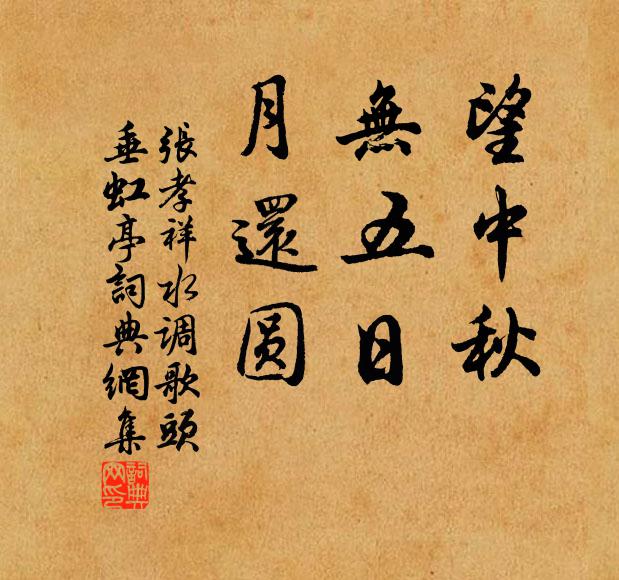 望中秋
無五日
月還圆
張孝祥水调歌頭
垂虹亭詞典網集
詞典
网印